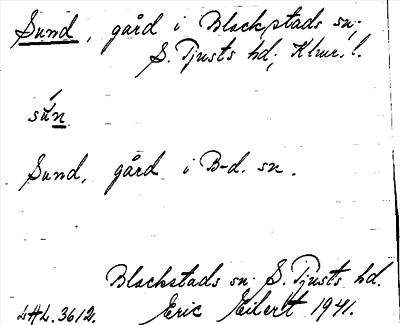 Sund, gård i Blackstads sn;
S. Tjusts hd; Klmr. l.
sún
Sund, gård i B-d. sn.
Blackstads sn. S. Tjusts hd.
LHL. 3612. Eric Eilert 1941.